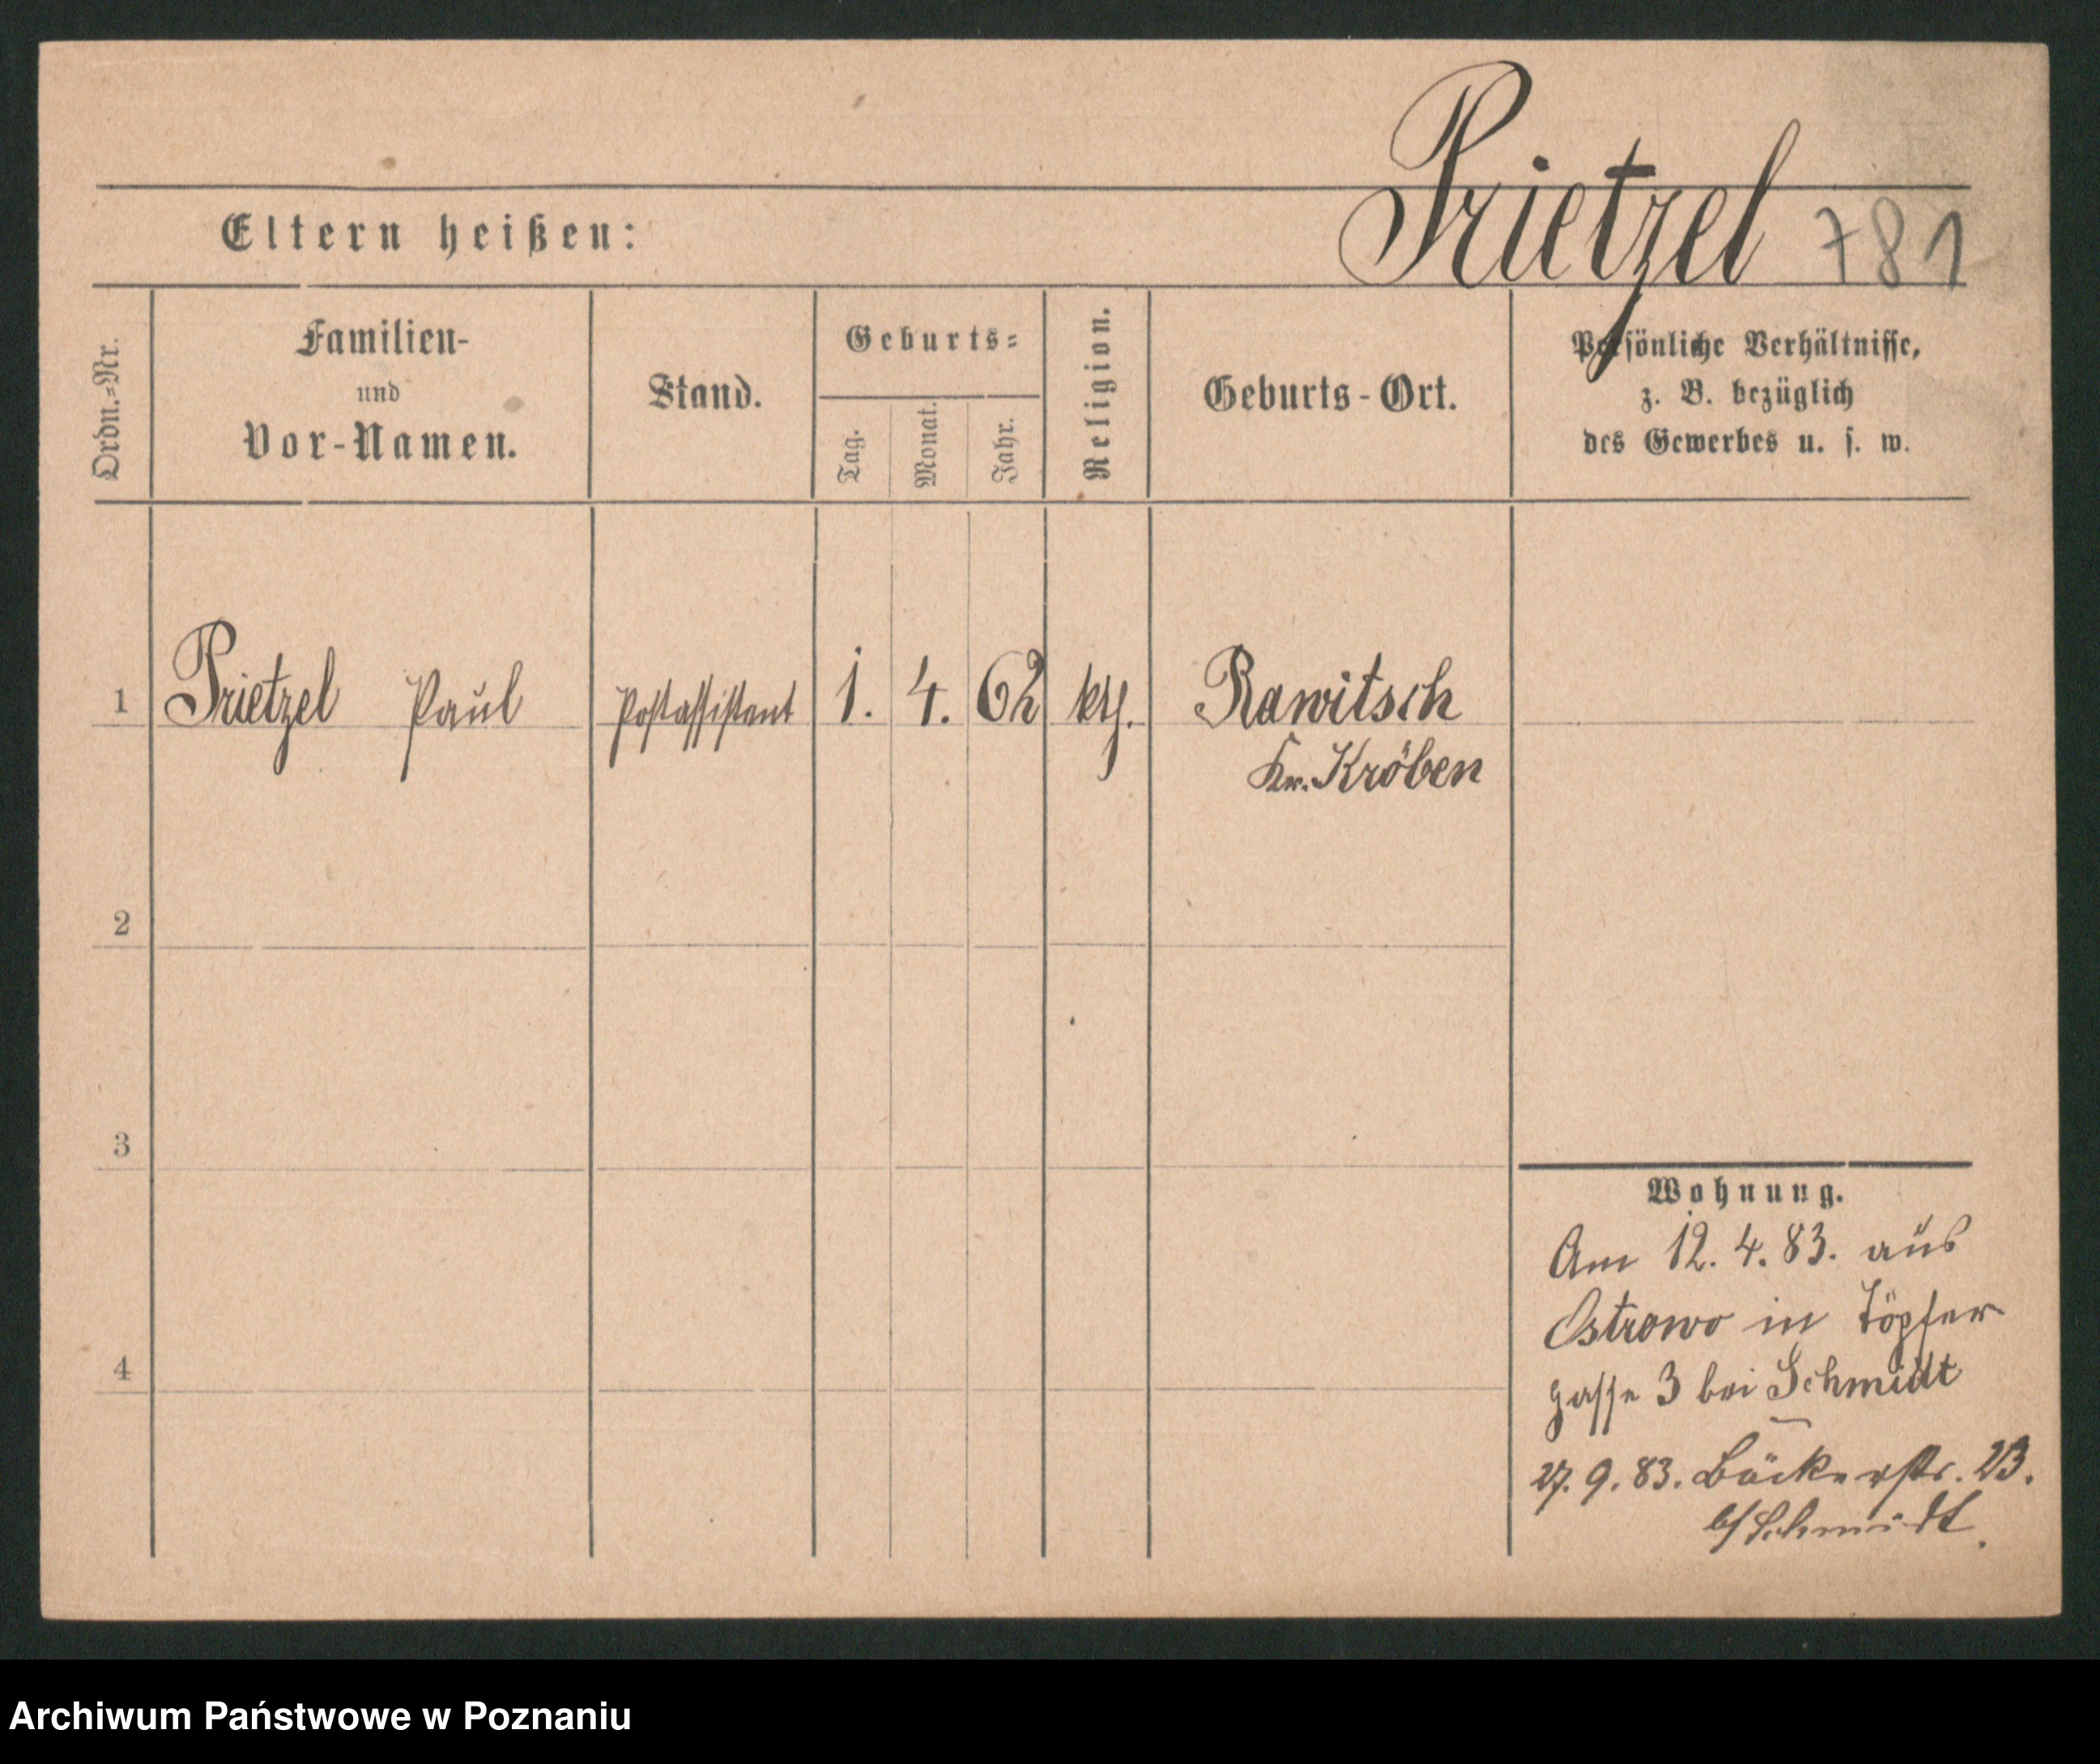 Prietzel 781
Eltern heißen:
Ordn.=Nr.
Familien-
und
Vor-Namen.
Stand.
Geburts=
Tag.
Monat.
Jahr.
Religion.
Geburts-Ort.
Persönliche Verhältnisse,
z. B. bezüglich
des Gewerbes u. s. w.
1 Prietzel Paul Postassistent 1. 4. 62 Rawitsch
Kr. Kröben
2
3
4
Wohnung.
Am 12. 4. 83. aus
Ostrowo in Töpfer
gasse 3 bei Schmidt
27. 9. 83. Bäckerstr. 23.
b/ Schmidt.
Archiwum Państwowe w Poznaniu